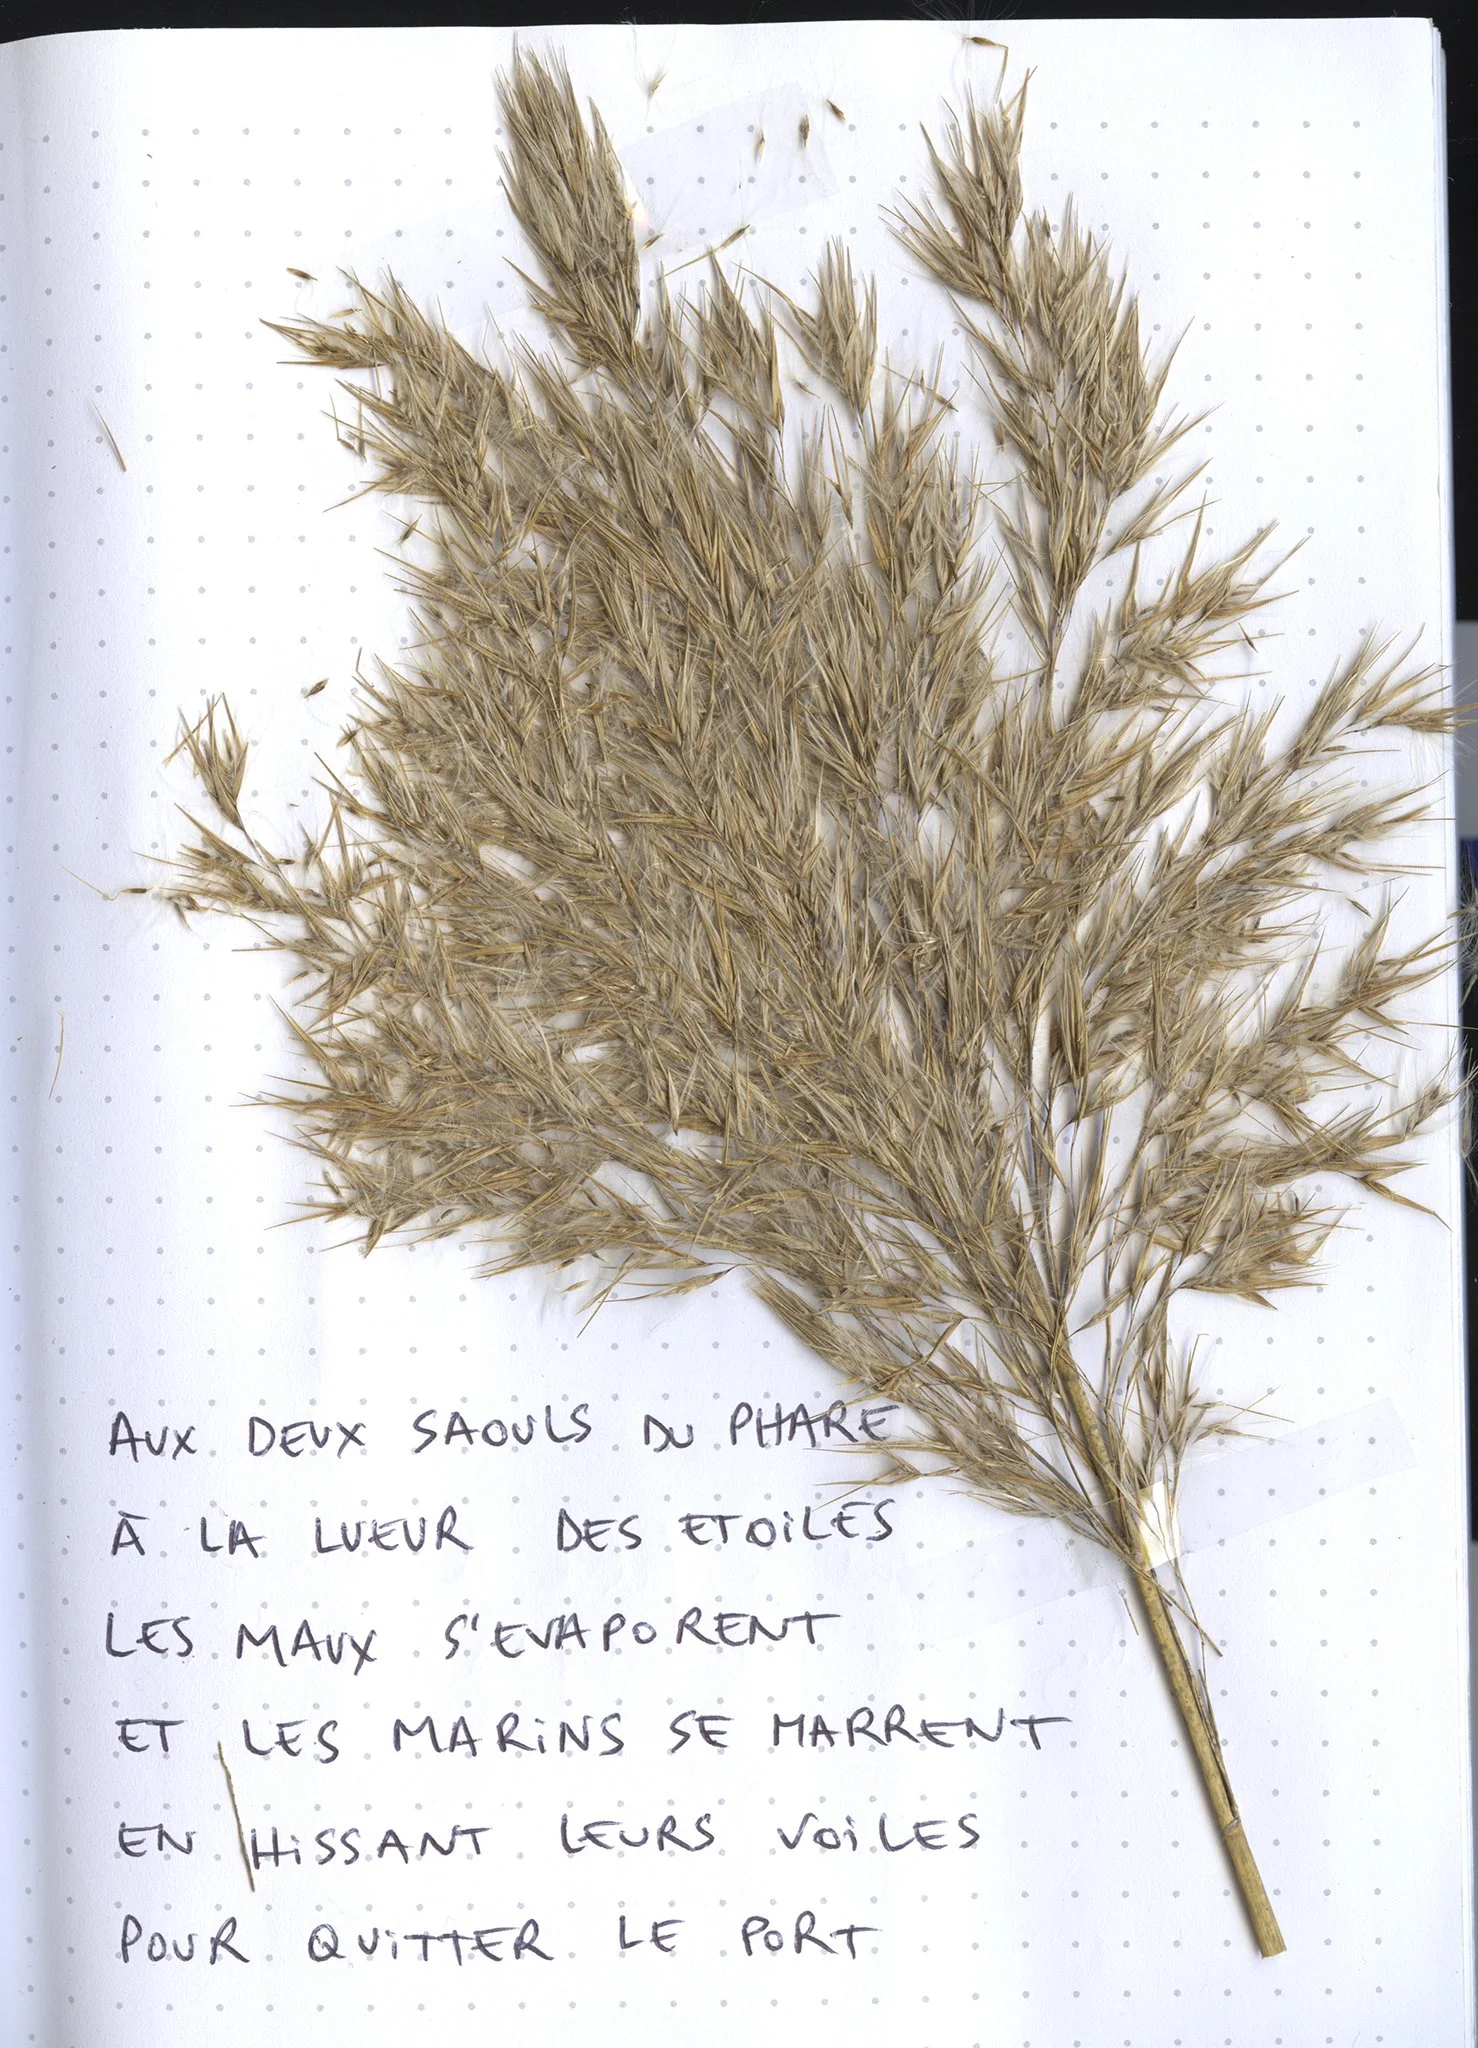 AUX DEUX SAOULS DU PHARE
À LA LUEUR DES ETOiLES
LES MAUX S'EVAPORENT
ET LES MARiNS SE MARRENT
EN HiSSANT LEURS VOiLES
POUR QUiTTER LE PORT